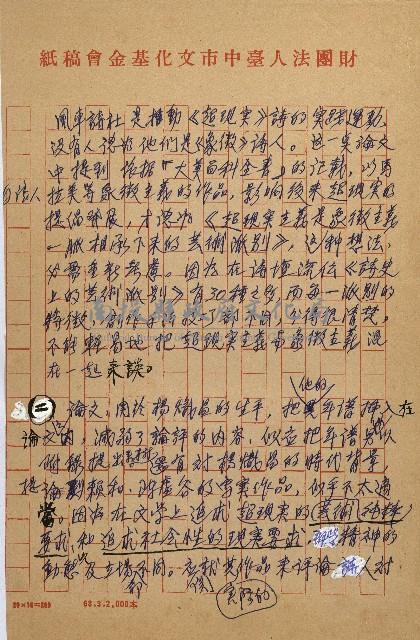 財團法人臺中市文化基金會稿紙
風車詩社是推動《超現實》詩的実践運動,
没有人認為他們是《象徵》詩人。這一篇論文
中提到依据「大英百科全書」的記載,以馬
拉美等象徵主義的作品,影响後來超現実的
法人
提倡發展,才認为《超現実主義是象徵主義
一脈相承下來的芸術派別》,这种想法,
必要重新思慮。因为在詩壇流伝《詩史
上的芸術派別》有30種之多,而每一派別的
特徵,創作手法
不能輕易地把超現実主義與象徵主義混
在一起來談。
二 論文,関於楊熾昌的生平,把他的年譜插入在
論文內,減弱了論評的內容,似应把年譜以
附錄提出。還有对楊熾昌的時代背景,
提論到賴和、洋逵各的寫実作品,似乎不太適
當。因为在文学上追求超現実的芸術精神
要求,和追求社会性的現実要求 精神的
動態及立場不同。應就其作品來評論,詩人对
寫実的
20×10=200 68.3.2,000本